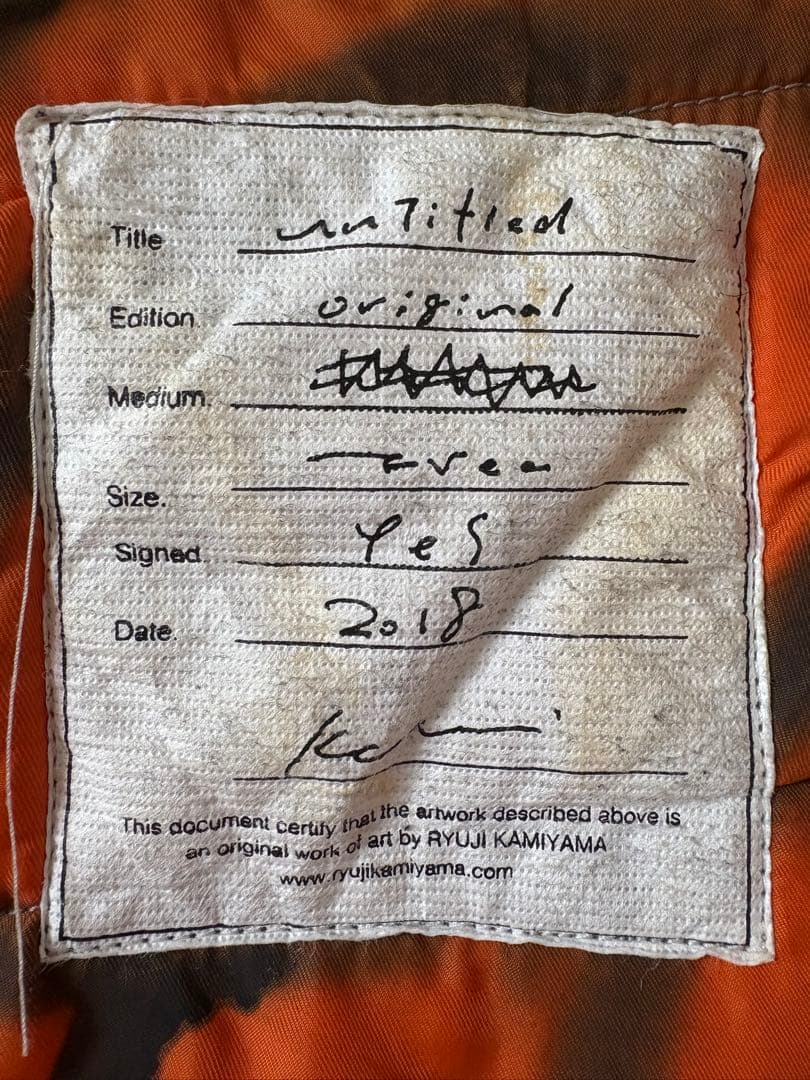 Title untitled
Edition. original
Medium.
Size.
Signed. Yes
Date. 2018
This document certify that the artwork described above is
an original work of art by RYUJI KAMIYAMA
www.ryujikamiyama.com